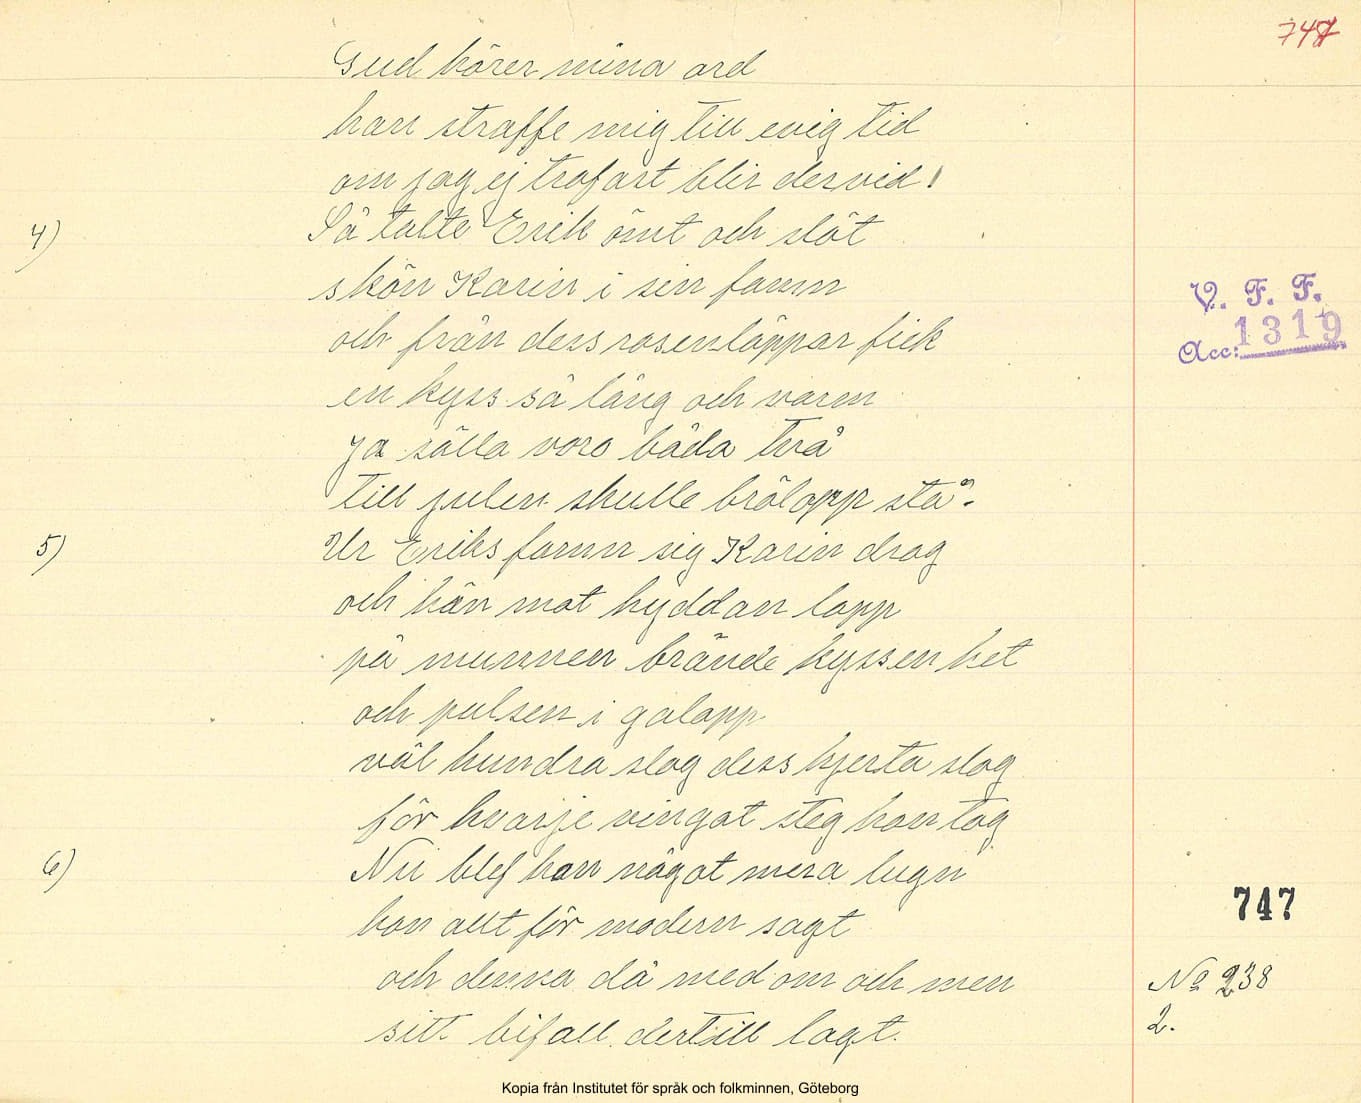 747
Gud hörer mina ord
han straffe mig till evig tid
om jag ej trofast blir dervid!
4) Så talte Erik ömt och slöt
skön Karin i sin famn
och från dess rosenläppar fick
en kyss så lång och varm
ja sälla voro båda två
till julen skulle brölopp stå".
5) Ur Eriks famn sig Karin drog
och hän mot hyddan lopp
på munnen brände kyssen het
och pulsen i galopp
väl hundra slag dess hjerta slog
för hvarje vingat steg hon tog
6) Nu blef hon något mera lugn
hon allt för modern sagt
och denna då med om och men
sitt bifall dertill lagt.
V. F. F.
Acc: 1319
747
No 238
2.
Kopia från Institutet för språk och folkminnen, Göteborg